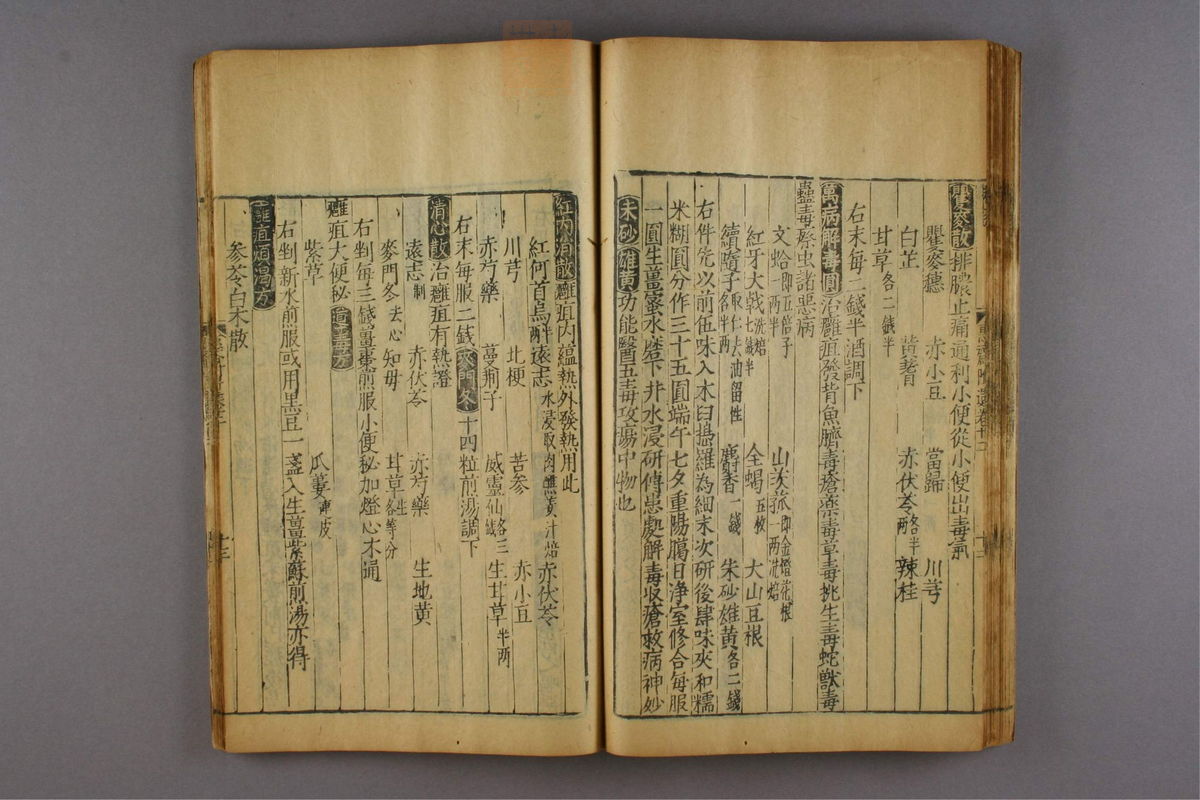 瞿麥散排膿止痛通利小便從小便出毒氣
瞿麥穗 赤小豆 當歸 川芎
白芷 黃耆 赤伏苓各半兩 辣桂
甘草各二錢半
右末每二錢半酒調下
萬病解毒圓治癰疽發背魚臍毒瘡藥毒草毒挑生毒蛇獸毒
蠱毒瘵虫諸惡病
文蛤即五倍子一兩半 山茨菰即金燈花根一兩洗焙
紅牙大戟洗焙七錢半 全蝎五枚 大山豆根
續隨子取仁去油留性各半兩 麝香一錢 朱砂雄黃各二錢
右件先以前伍味入木臼擣羅為細末次研後肆味夾和糯
米糊圓分作三十五圓端午七夕重陽臘日淨室修合每服
一圓生薑蜜水磨下井水浸研傅患處解毒收瘡救病神妙
朱砂雄黃功能醫五毒攻瘍中物也
紅內消散癰疽內蘊熱外發熱用此
紅何首烏半兩 遠志水浸取肉醮黃汁焙 赤伏苓
川芎 北梗 苦參 赤小豆
赤芍藥 蔓荊子 威靈仙各三錢 生甘草半兩
右末每服二錢麥門冬十四粒煎湯調下
清心散治癰疽有熱證
遠志制 赤伏苓 赤芍藥 生地黃
麥門冬去心 知母 甘草生各等分
右剉每三錢薑棗煎服小便秘加燈心木通
癰疽大便秘導毒方
紫草 瓜蔞連皮
右剉新水煎服或用黑豆一盞入生薑紫蘇煎湯亦得
癰疽煩渴方
參苓白术散